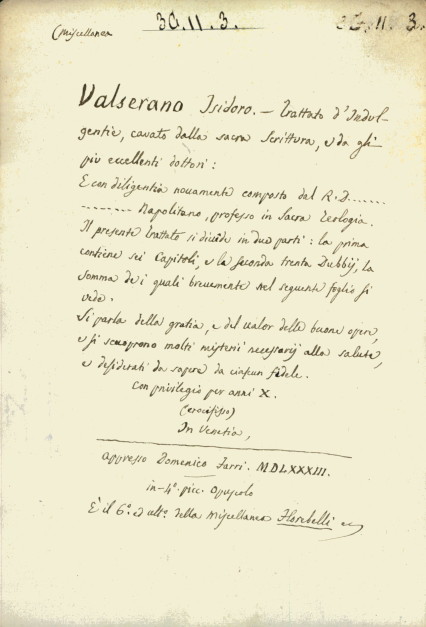 (Miscellanea
30.11.3.
30.11.3.
Valserano Isidoro. — Trattato d'Indul-
gentie, cavato dalla sacra Scrittura, e da gli
più eccellenti dottori:
E con diligentia novamente composto dal R. D.......
......... Napolitano, professo in Sacra Teologia.
Il presente trattato si divide in due parti: la prima
contiene sei Capitoli, e la seconda trenta Dubbij, la
somma de i quali brevemente nel seguente foglio si
vede.
Si parla della gratia, e del valor delle buone opere,
e si scuoprono molti misterii necessarij alla salute,
e desiderati da sapere da ciascun fedele.
Con privilegio per anni X.
(crocifisso)
In Venetia,
Appresso Domenico Farri. MDLXXXIII.
in-4º. picc. Opuscolo
È il 6º. ed ultº. della Miscellanea Florebelli